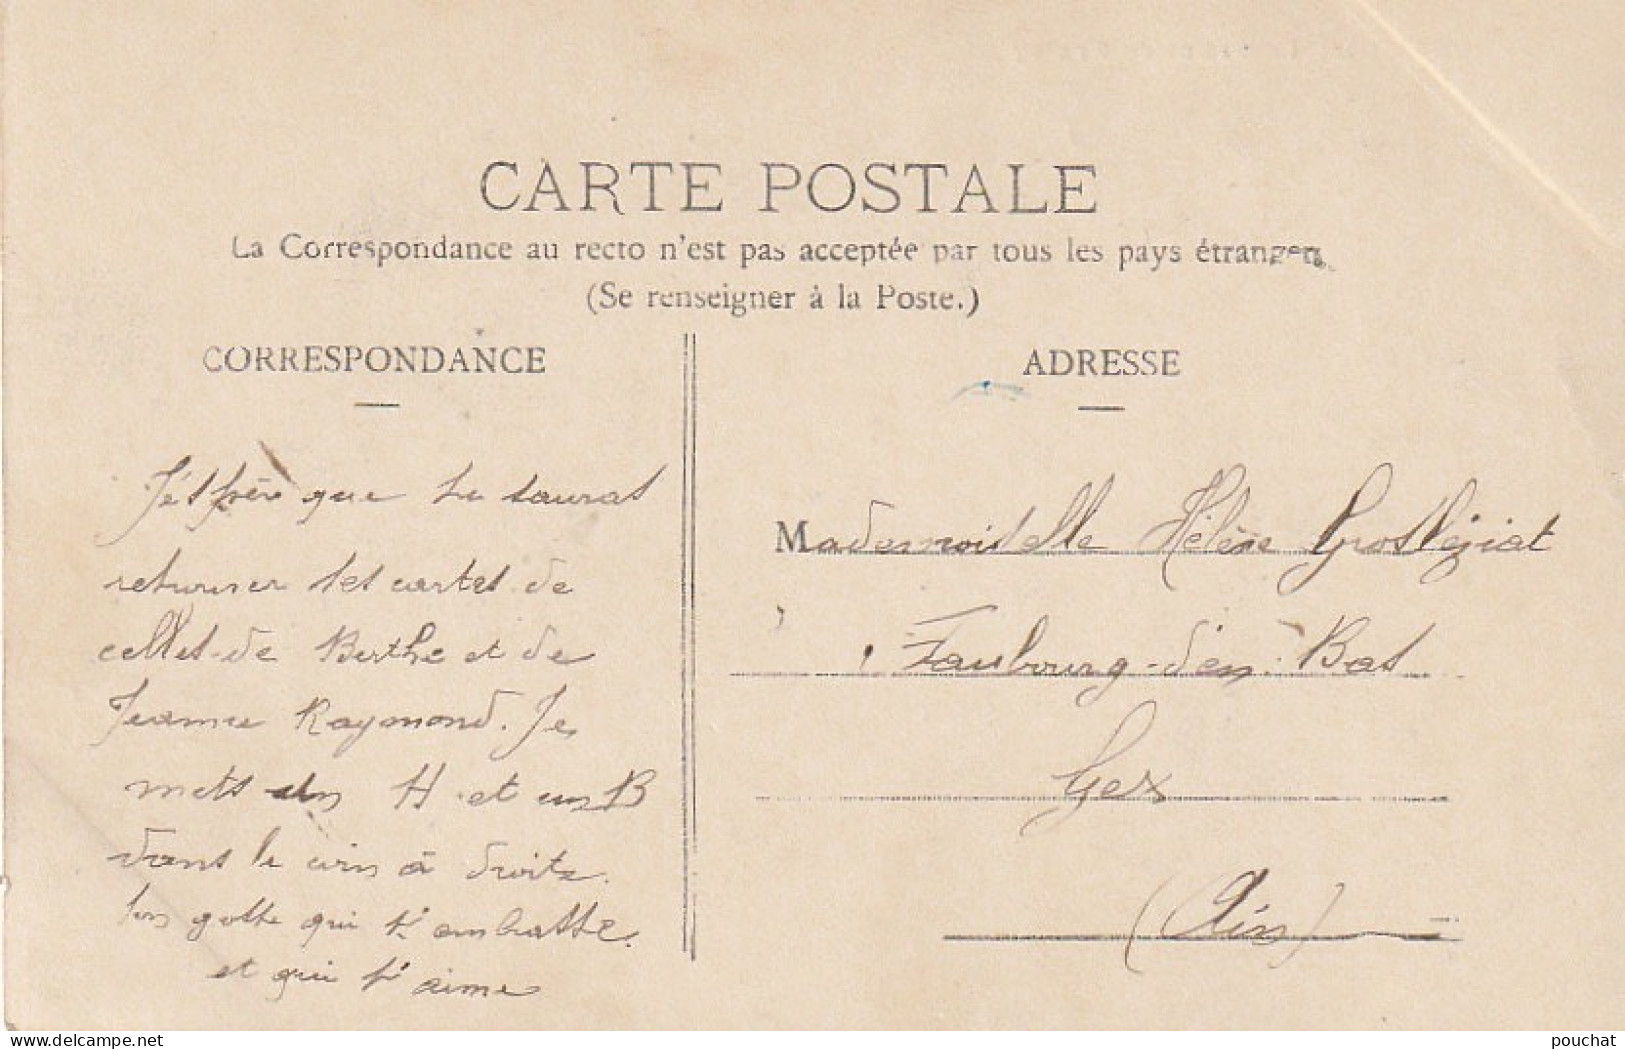 CARTE POSTALE
La Correspondance au recto n'est pas acceptée par tous les pays étrangers
(Se renseigner à la Poste.)
CORRESPONDANCE
ADRESSE
J'éspère que tu sauras
retourner tes cartes de
celles-de Berthe et de
Jeanne Raymond. Je
mets un H et un B
dans le coin à droite.
Ton gosse qui t'embrasse.
et qui t'aime
Mademoiselle Hélène
Faubourg-d'en-Bas
Gex
(Ain)
pouchat